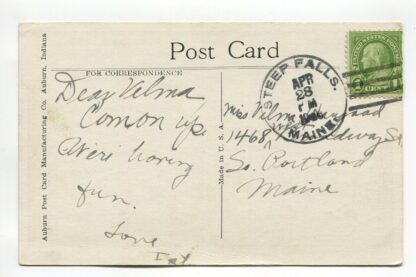 Post Card
FOR CORRESPONDENCE
Auburn Post Card Manufacturing Co. Auburn, Indiana
Made in U.S.A.
Dear Velma
Comon up
Were having
fun.
Love
W. STEEP FALLS.
APR
28
PM
MAINE
UNITED STATES POSTAGE
CENT
Miss Velma
1468
So. Portland
Maine